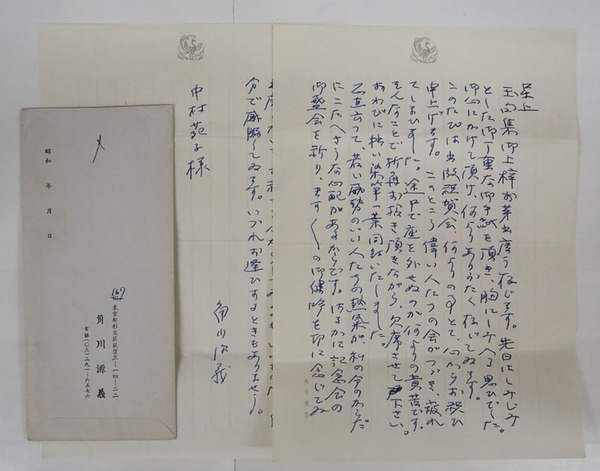 啓上
玉句集御上梓お芽出度う存じます。先日はしみじみ
とした御丁重な御手紙を頂き、胸にしみ入る思ひでした。
御心にかけて頂け、何よりありがたく存じてゐます。
このたびは出版祝賀会、何よりの事とて、心からお祝ひ
申上げます。このところ偉い人たちの会がつづき、疲れ
てしまひました。途中で座を外せぬのが何よりの責苦です。
そんなことで折角お招き頂きながら、欠席させて下さい。
おわびに拙い染筆一葉同封いたしました。
正直言つて若い威勢のいい人たちの熱気が私の今のからだ
にこたへさうな心配があるからです。はるかに記念会の
御盛会を祈り、ます〱御健吟を切に念じてゐ
分で感服してゐます。いづれお逢ひするときもありませう。
角川源義
中村苑子様
昭和 年 月 日
167
東京都杉並区荻窪三ー一四ー二二
角川源義
電話(〇三)三九一ー六五七六